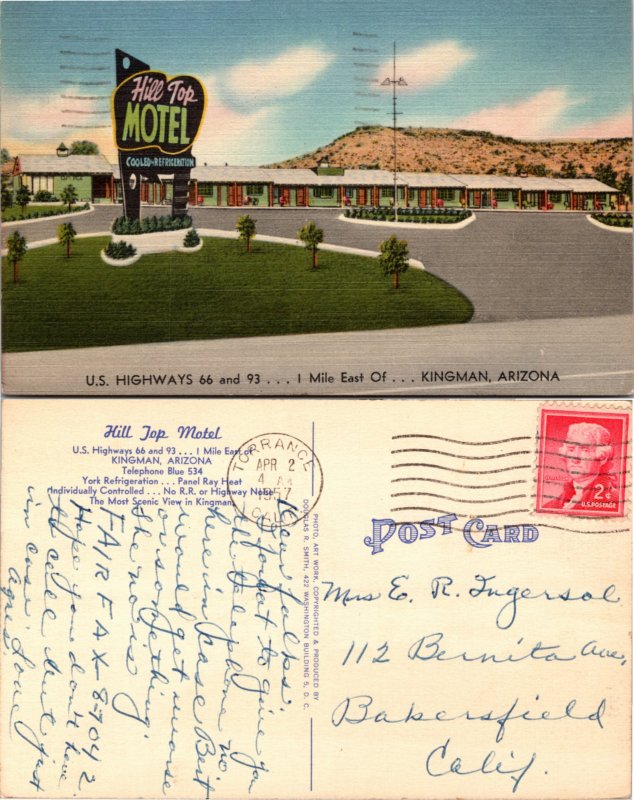 Hill Top
MOTEL
COOLED by REFRIGERATION
U.S. HIGHWAYS 66 and 93 . . . 1 Mile East Of . . . KINGMAN, ARIZONA
Hill Top Motel
U.S. Highways 66 and 93 . . . 1 Mile East of
KINGMAN, ARIZONA
Telephone Blue 534
York Refrigeration . . . Panel Ray Heat
Individually Controlled . . . No R.R. or Highway Noise
The Most Scenic View in Kingman
TORRANCE
APR 2
4 AM
1957
CALIF.
2¢
U.S. POSTAGE
POST CARD
PHOTO, ART WORK, COPYRIGHTED & PRODUCED BY
DOUGLAS R. SMITH, 422 WASHINGTON BUILDING 5, D. C.
Dear folks,
I forgot to give you
the telephone no.
here in case Bert
would get worse
or something.
The no is
FAIRFAX-8-7042
Hope you don't have
to call but just
in case. Love
Agnes.
Mrs E. R. Ingersol
112 Bernita Ave,
Bakersfield
Calif.